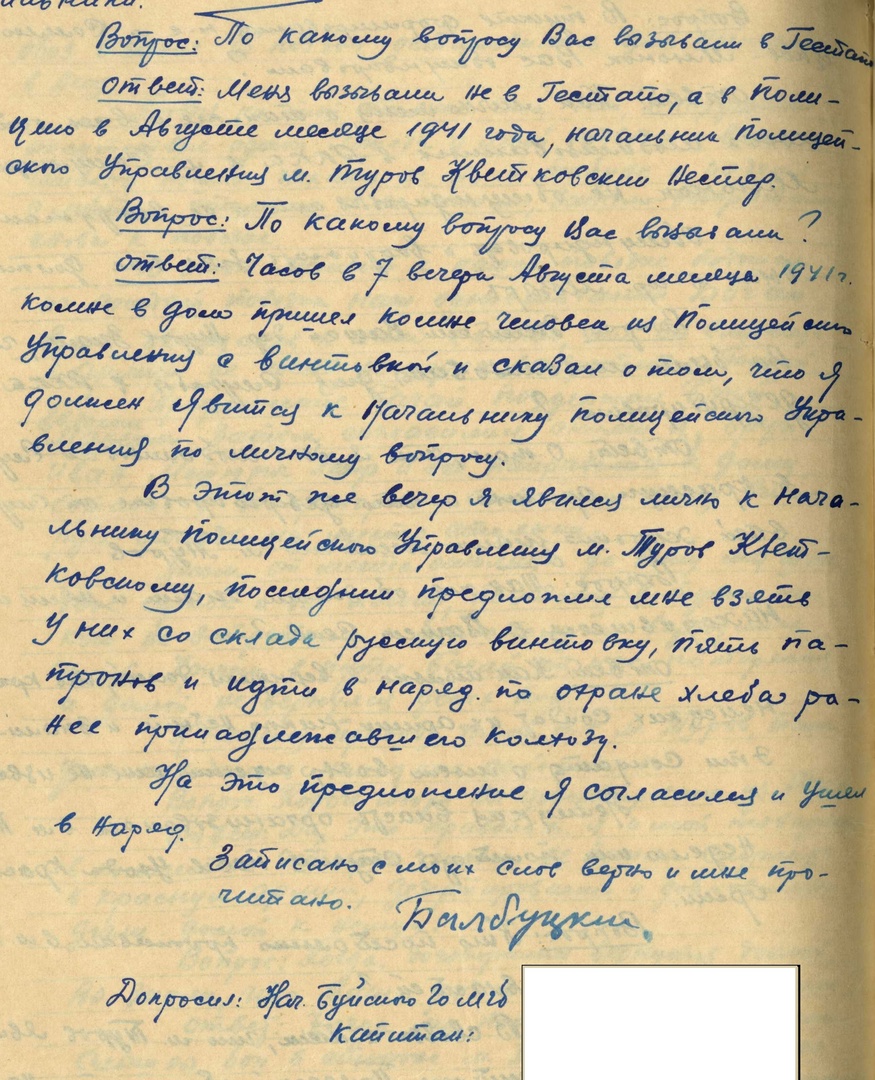 Вопрос: По какому вопросу Вас вызывали в Гестапо
Ответ: Меня вызывали не в Гестапо, а в Поли-
цию в Августе месяце 1941 года, начальник Полицей-
ского Управления м. Туров Кветковский Нестер.
Вопрос: По какому вопросу Вас вызывали?
Ответ: Часов в 7 вечера Августа месяца 1941 г.
комне в дом пришел комне человек из Полицейского
Управления с винтовкой и сказал о том, что я
должен явится к Начальнику Полицейского Упра-
вления по личному вопросу.
В этот же вечер я явился лично к Нача-
льнику Полицейского Управления м. Туров Квет-
ковскому, последний предложил мне взять
у них со склада русскую винтовку, пять па-
тронов и идти в наряд. по охране хлеба ра-
нее принадлежавшего колхозу.
На это предложение я согласился и ушел
в наряд.
Записано с моих слов верно и мне про-
читано. Балбуцкий
Допросил: Нач. Буйского Го МГБ
Капитан: